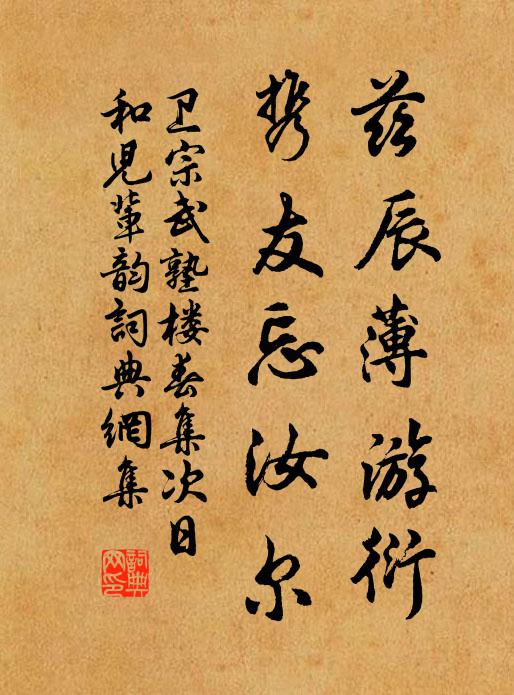 兹辰薄游衍
携友忘汝尔
卫宗武塾楼春集次日
和児輩韵詞典網集
詞典网印